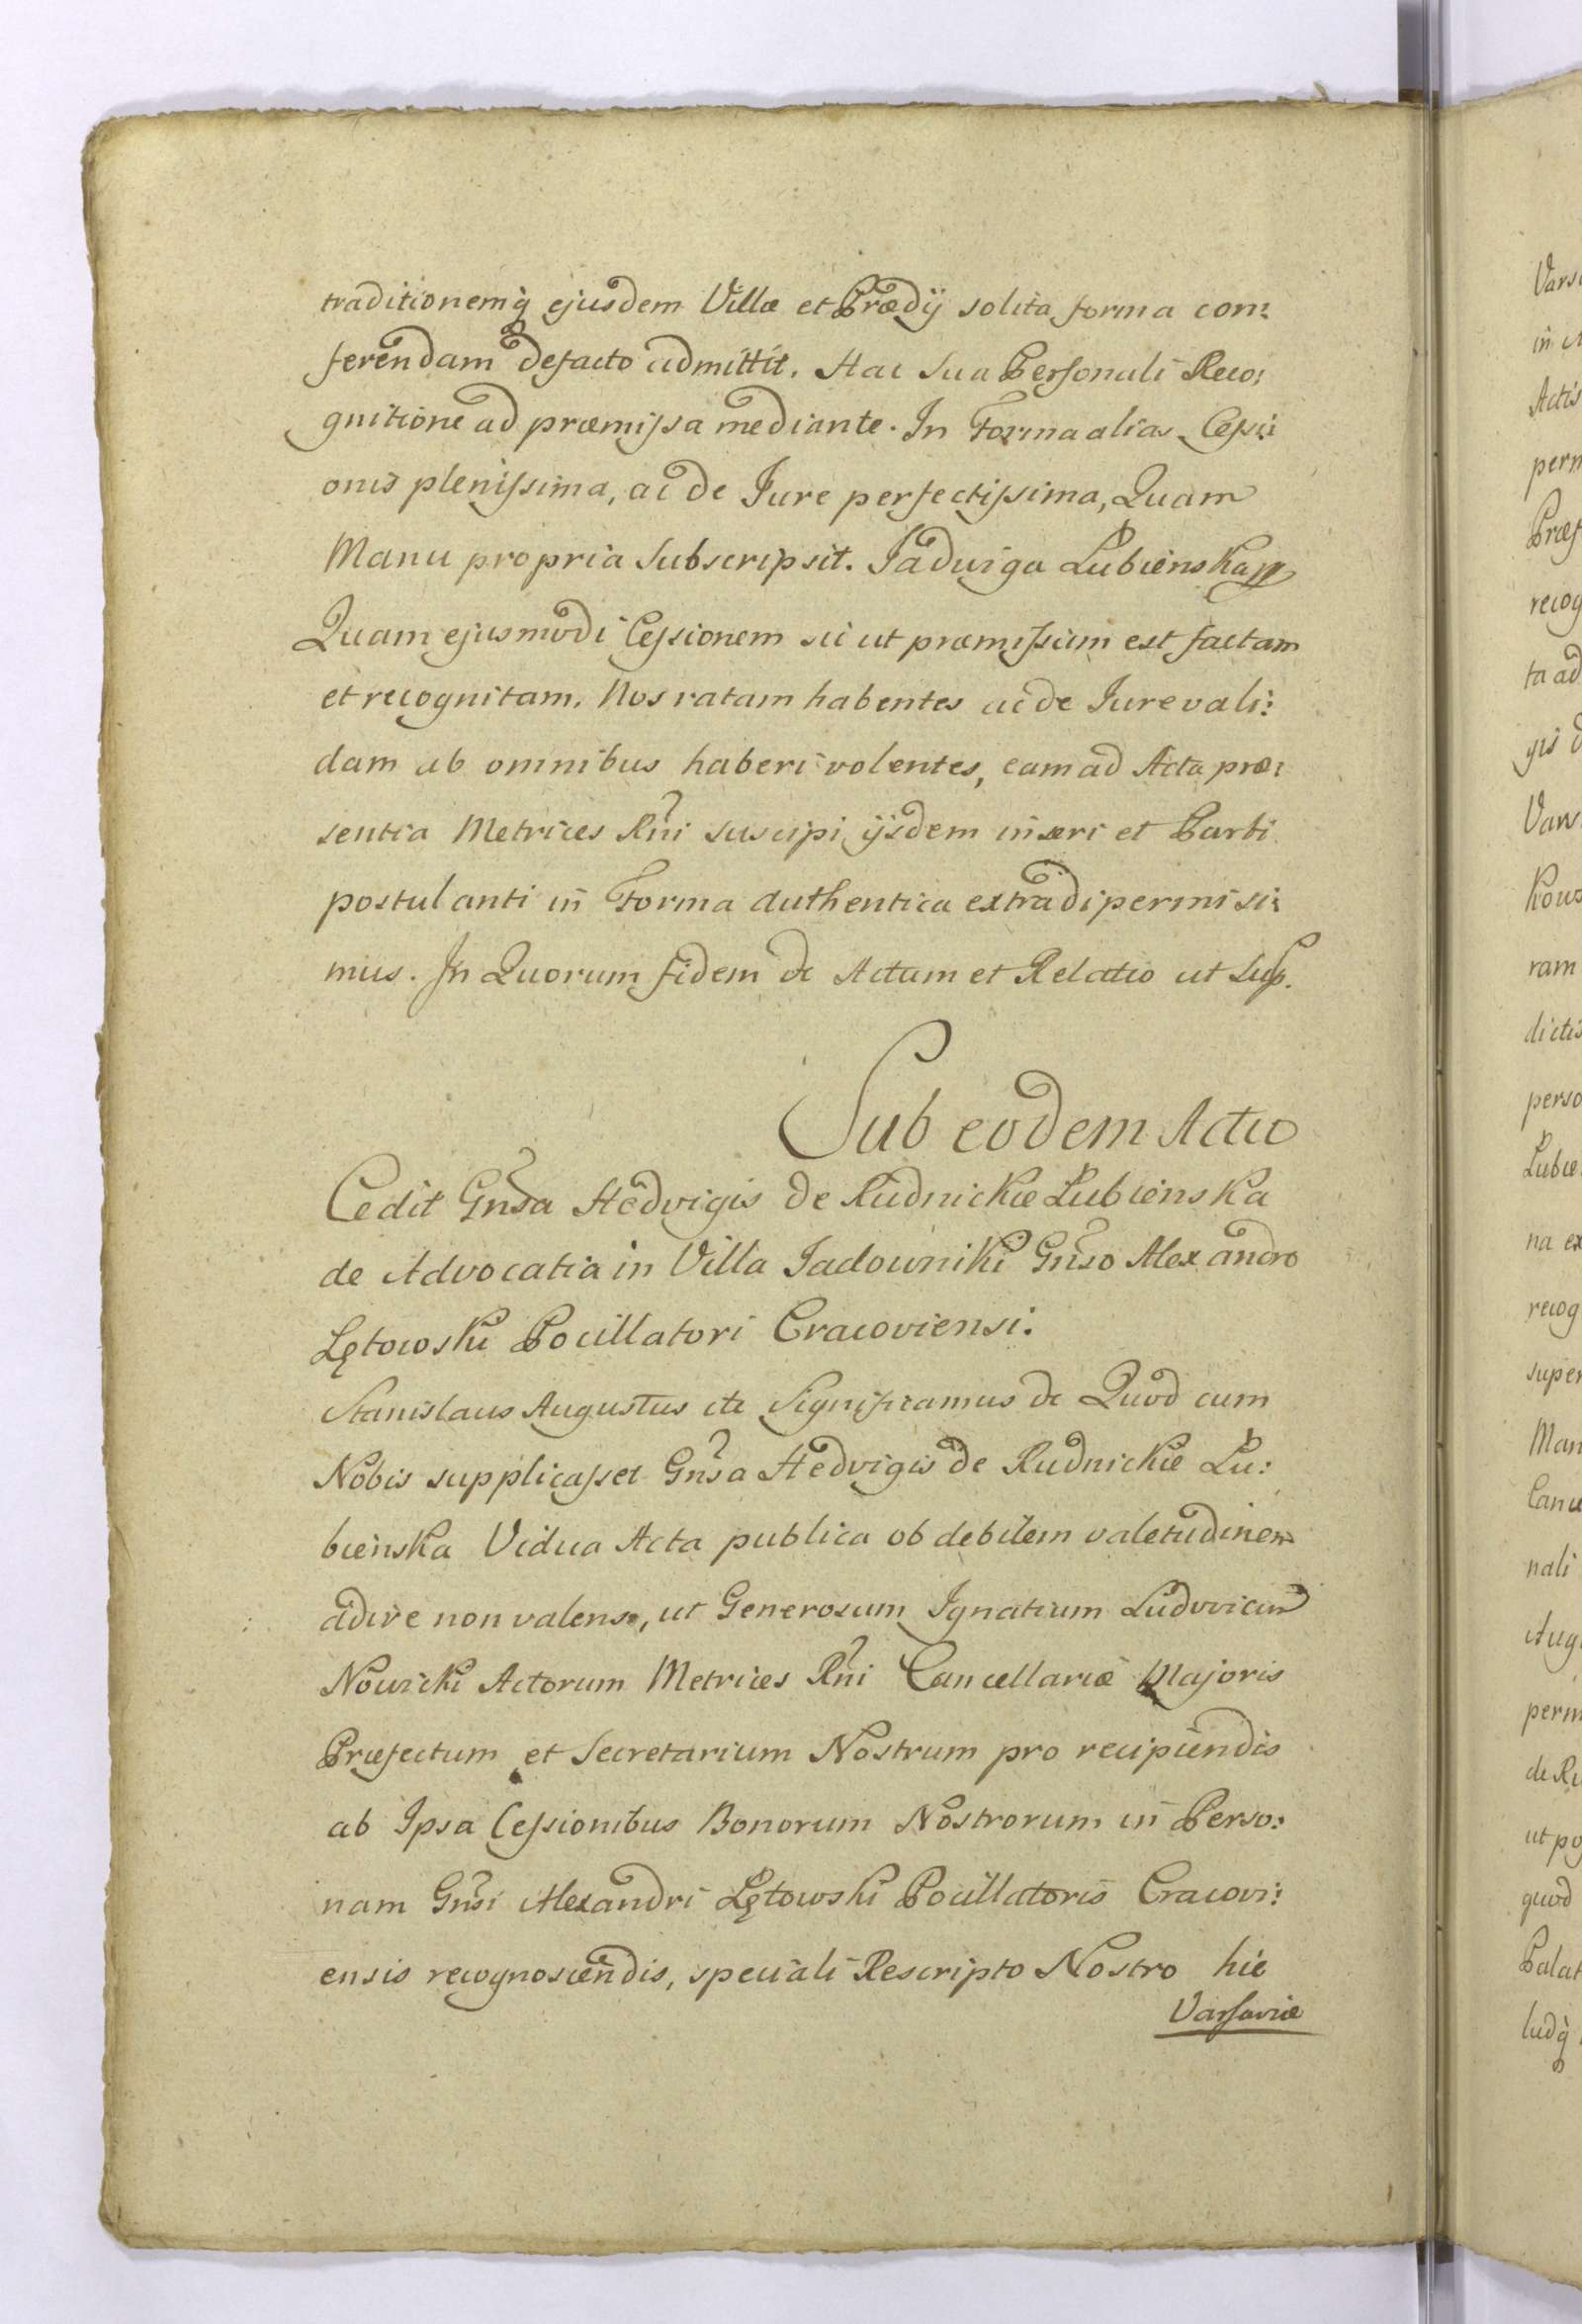 traditionemq; ejusdem Villæ et Prædij solita forma con:
ferendam defacto admittit. Hac sua Personali Reco:
gnitione ad præmissa mediante. In Forma alias Cessi:
onis plenissima, ac de Jure perfectissima, Quam
Manu propria subscripsit. Jadwiga Łubienska mp
Quam ejusmodi Cessionem sic ut præmissum est factam
et recognitam. Nos ratam habentes ac de Jure vali:
dam ab omnibus haberi volentes, eam ad Acta præ:
sentia Metrices Rñi suscipi ijsdem inseri et Parti
postulanti in Forma authentica extradi permisi:
mus. In Quorum fidem &c Actum et Relatio ut sup.
Sub eodem Actu
Cedit Gnsa Hedvigis de Rudnickie Łubienska
de Advocatia in Villa Jadowniki Gnso Alexandro
Łętowski Pocillatori Cracoviensi.
Stanislaus Augustus etc Significamus &c Quod cum
Nobis supplicasset Gnsa Hedvigis de Rudnickie Łu:
bienska Vidua Acta publica ob debilem valetudinem
adire non valens, ut Generosum Ignatium Ludovicum
Nowicki Actorum Metrices Rñi Cancellariæ Majoris
Præfectum et Secretarium Nostrum pro recipiendis
ab Ipsa Cessionibus Bonorum Nostrorum in Perso:
nam Gnsi Alexandri Łętowski Pocillatoris Cracovi:
ensis recognoscendis, speciali Rescripto Nostro hic
Varsaviæ